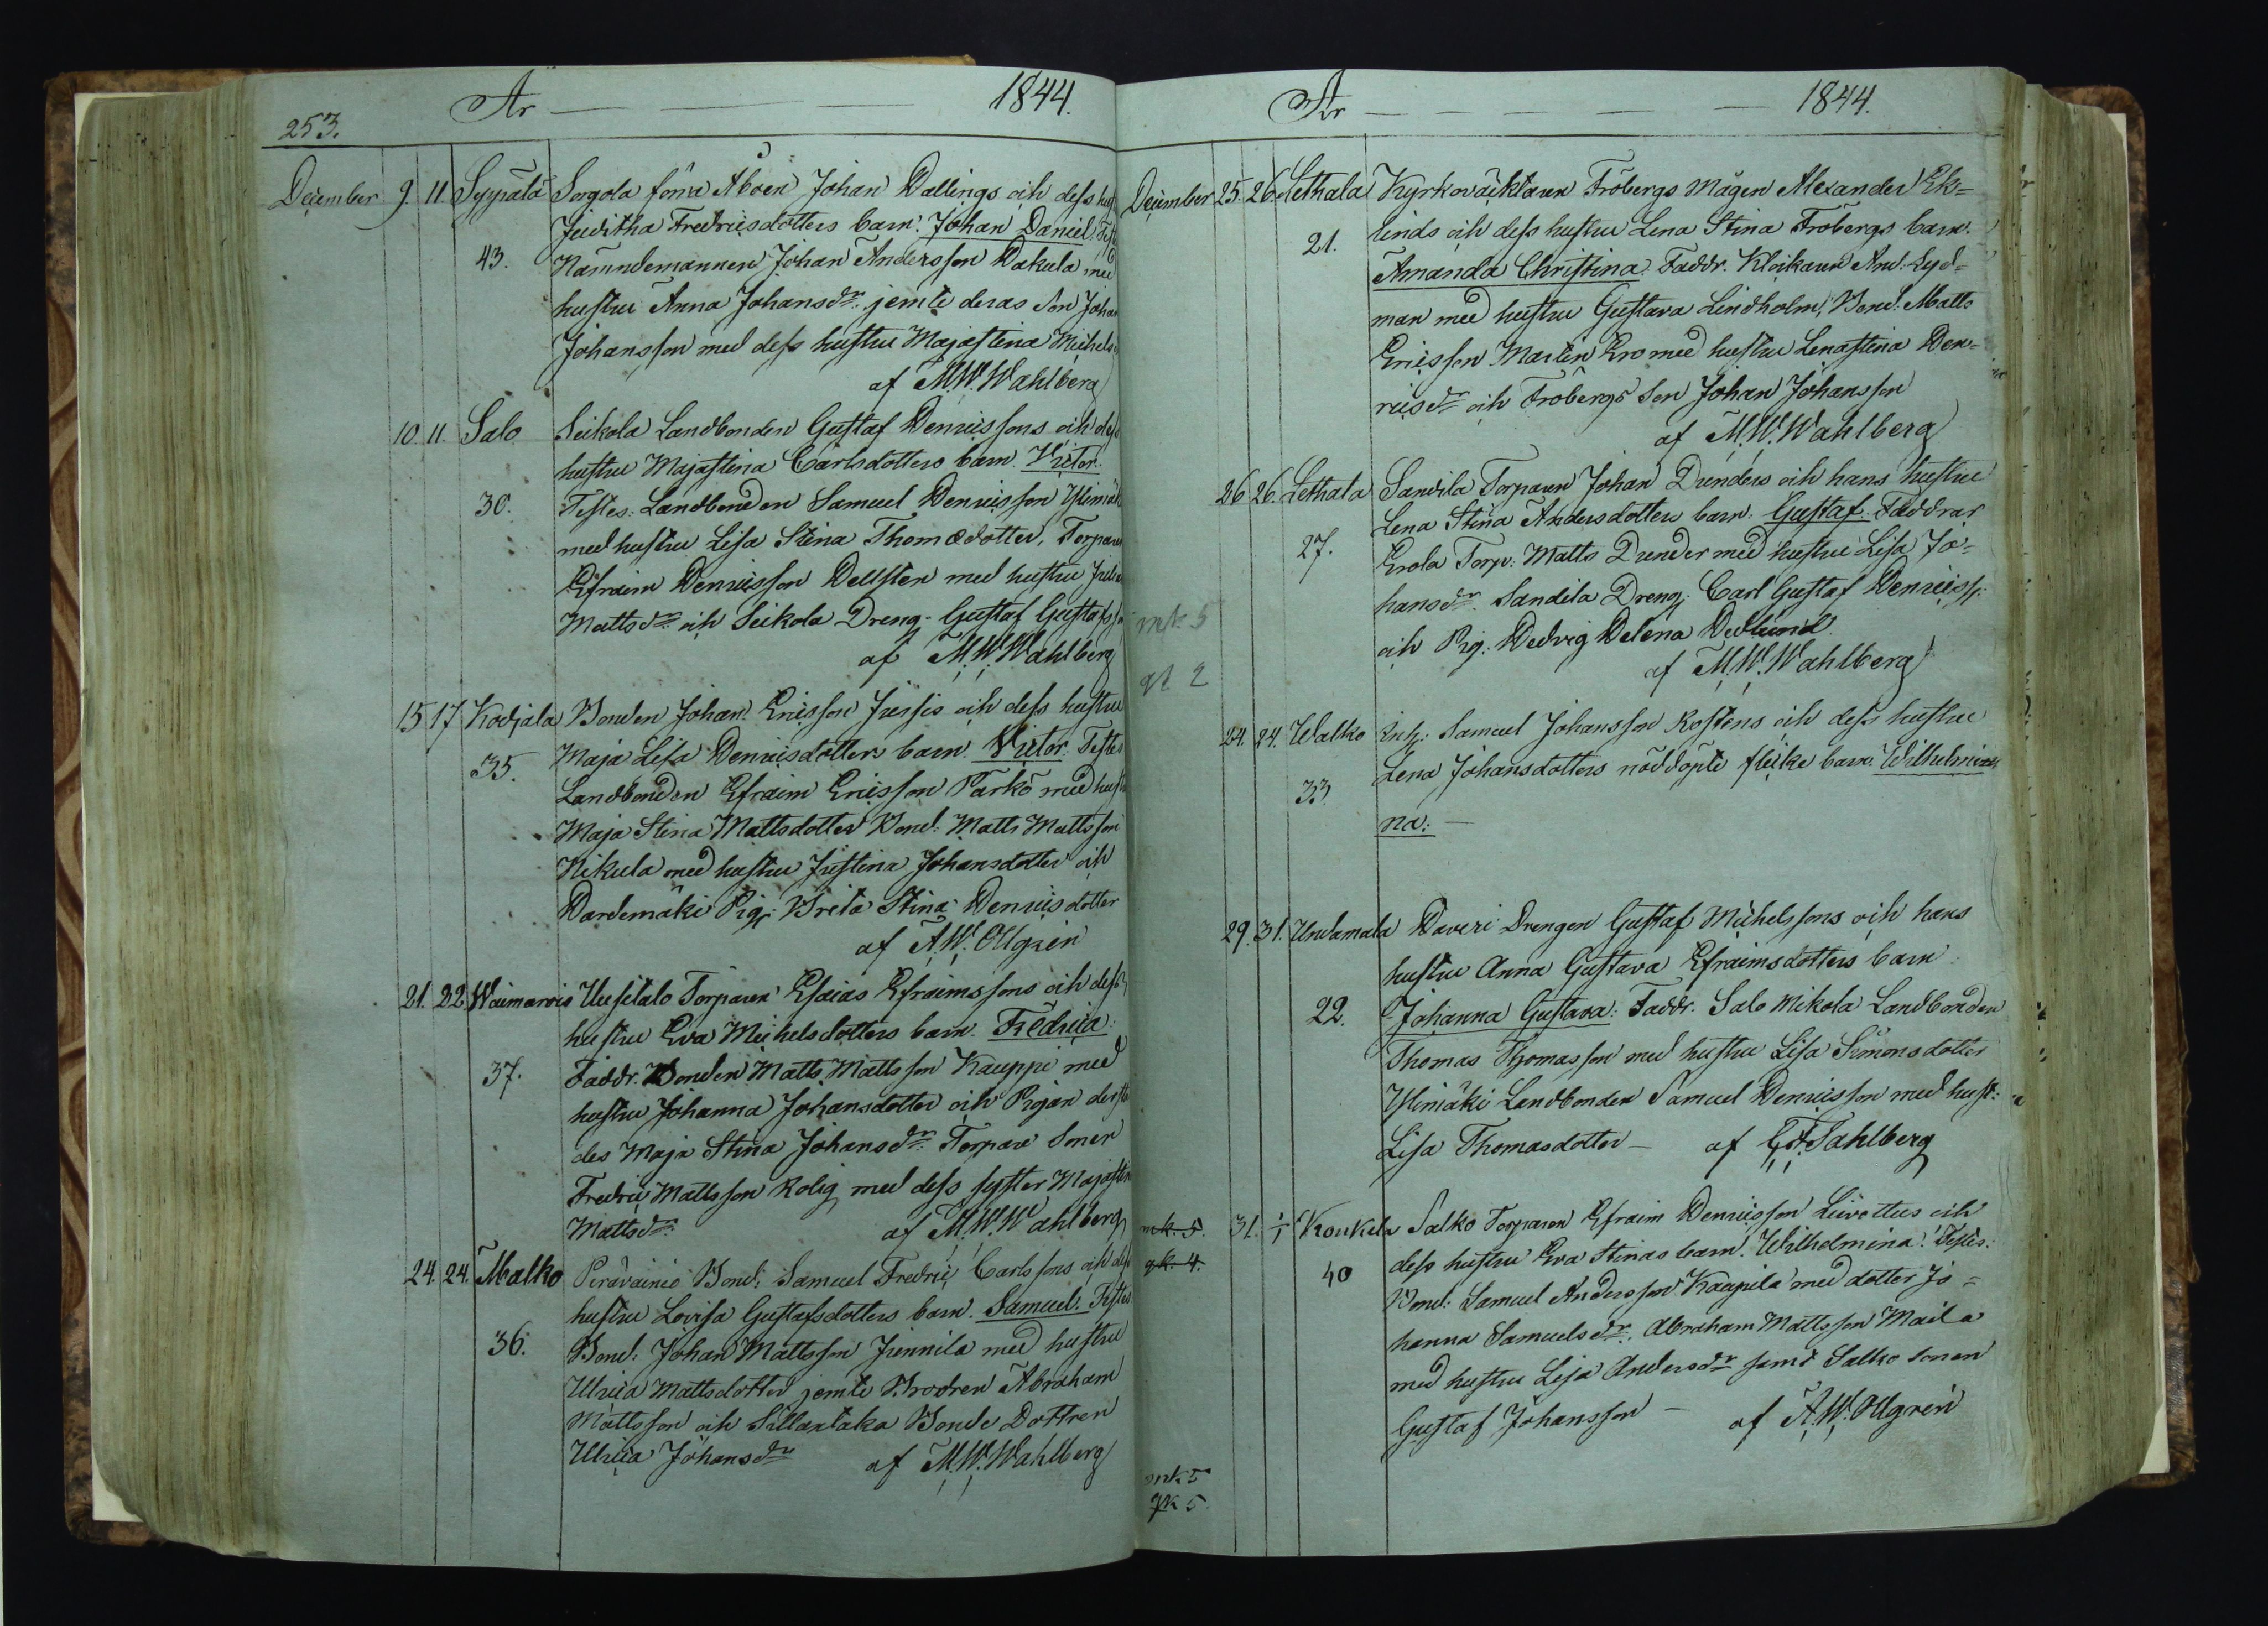 253.
År 1844.
December 9. 11. Syppälä Sorgola förra Åboen Johan Hallings och dess
Juditha Fredricsdotters barn. Johan Daniel.
43. Nämndemannen Johan Andersson Hakula med
hustru Anna Johansdr. jemte deras Son Johan
Johansson med dess hustru Majastina Michels
af M.W. Wahlberg
10. 11. Salo Seikola Landbonden Gustaf Henricssons och dess
hustru Majastina Carlsdotters barn. Victor.
30. Testes. Landbonden Samuel Henricsson Ylimäki
med hustru Lisa Stina Thomædotter, Torparen
Efraim Henricsson Hellsten med hustru
Mattsdr. och Seikola Dreng. Gustaf Gustafsson
af M.W. Wahlberg
15 17 Kodjala Bonden Johan Ericsson Jussis och dess hustru
Maja Lisa Henricsdotters barn. Victor. Testes
35. Landbonden Efraim Ericsson Parko med hust
Maja Stina Mattsdotter Bond: Matts Mattsson
Nikula med hustru Justina Johansdotter och
Hardemäki Pig: Brita Stina Henricsdotter
af A.W. Ollgren
21. 22. Waimarois Uusitalo Torparen Esaias Efraimssons och dess
hustru Eva Michelsdotters barn. Fredrica.
37. Faddr. Bonden Matts Mattsson Kauppi med
hustru Johanna Johansdotter och Pigan derste
des Maja Stina Johansdr. Torpare Soner
Fredric Mattsson Rolig med dess syster Majastina
Mattsdr. af M.W. Wahlberg
24. 24. Malko Perävainio Bond: Samuel Fredric Carlssons och dess
hustru Lovisa Gustafsdotters barn. Samuel. Testes
36. Bond: Johan Mattsson Junnila med hustru
Ulrica Mattsdotter jemte Brodren Abraham
Mattsson och Sillantaka Bonde Dottren
Ulrica Johansdr af M.W. Wahlberg
År 1844.
December 25. 26. Lethala Kyrkoväcktaren Fröbergs Mågen Alexander Ek=
21. linds och dess hustru Lena Stina Fröbergs barn.
Amanda Christina. Faddr. Klockaren And. Lyd=
man med hustru Gustava Lindholm, Bond: Matts
Ericsson Martin Ero med hustru Lenastina Hen=
ricsdr och Fröbergs Son Johan Johansson
af M.W. Wahlberg
26 26. Lethala Sandila Torparen Johan Dunders och hans hustru
Lena Stina Andersdotters barn. Gustaf. Faddrar
27. Erola Torp: Matts Dunder med hustru Lisa Jo=
hansdr. Sandila Dreng: Carl Gustaf Henricss.
och Pig: Hedvig Helena Hedlund.
af M.W. Wahlberg
mk 5
qk 2
24. 24. Walko Inh: Samuel Johansson Rostens och dess hustru
Lena Johansdotters nöddöpte flicke barn. Wilhelmi
33. na. —
29. 31. Undamala Haveri Drengen Gustaf Michelssons och hans
hustru Anna Gustava Efraimsdotters barn.
22. Johanna Gustava. Faddr. Salo Mikola Landbonden
Thomas Thomasson med hustru Lisa Simonsdotter
Ylimäki Landbonden Samuel Henricsson med hust:
Lisa Thomasdotter — af G.A. Sahlberg
mk. 5.
qk. 4.
31. 1/1 Koukela Salko Torparen Efraim Henricsson Liivettus och
dess hustru Eva Stinas barn. Wilhelmina. Testes.
40 Bond: Samuel Andersson Kaupila med dotter Jo=
hanna Samuelsdr. Abraham Mattsson Maila
med hustru Lisa Andersdr samt Salko Sonen
Gustaf Johansson — af A.W. Ollgren
mk 5
qk 5.